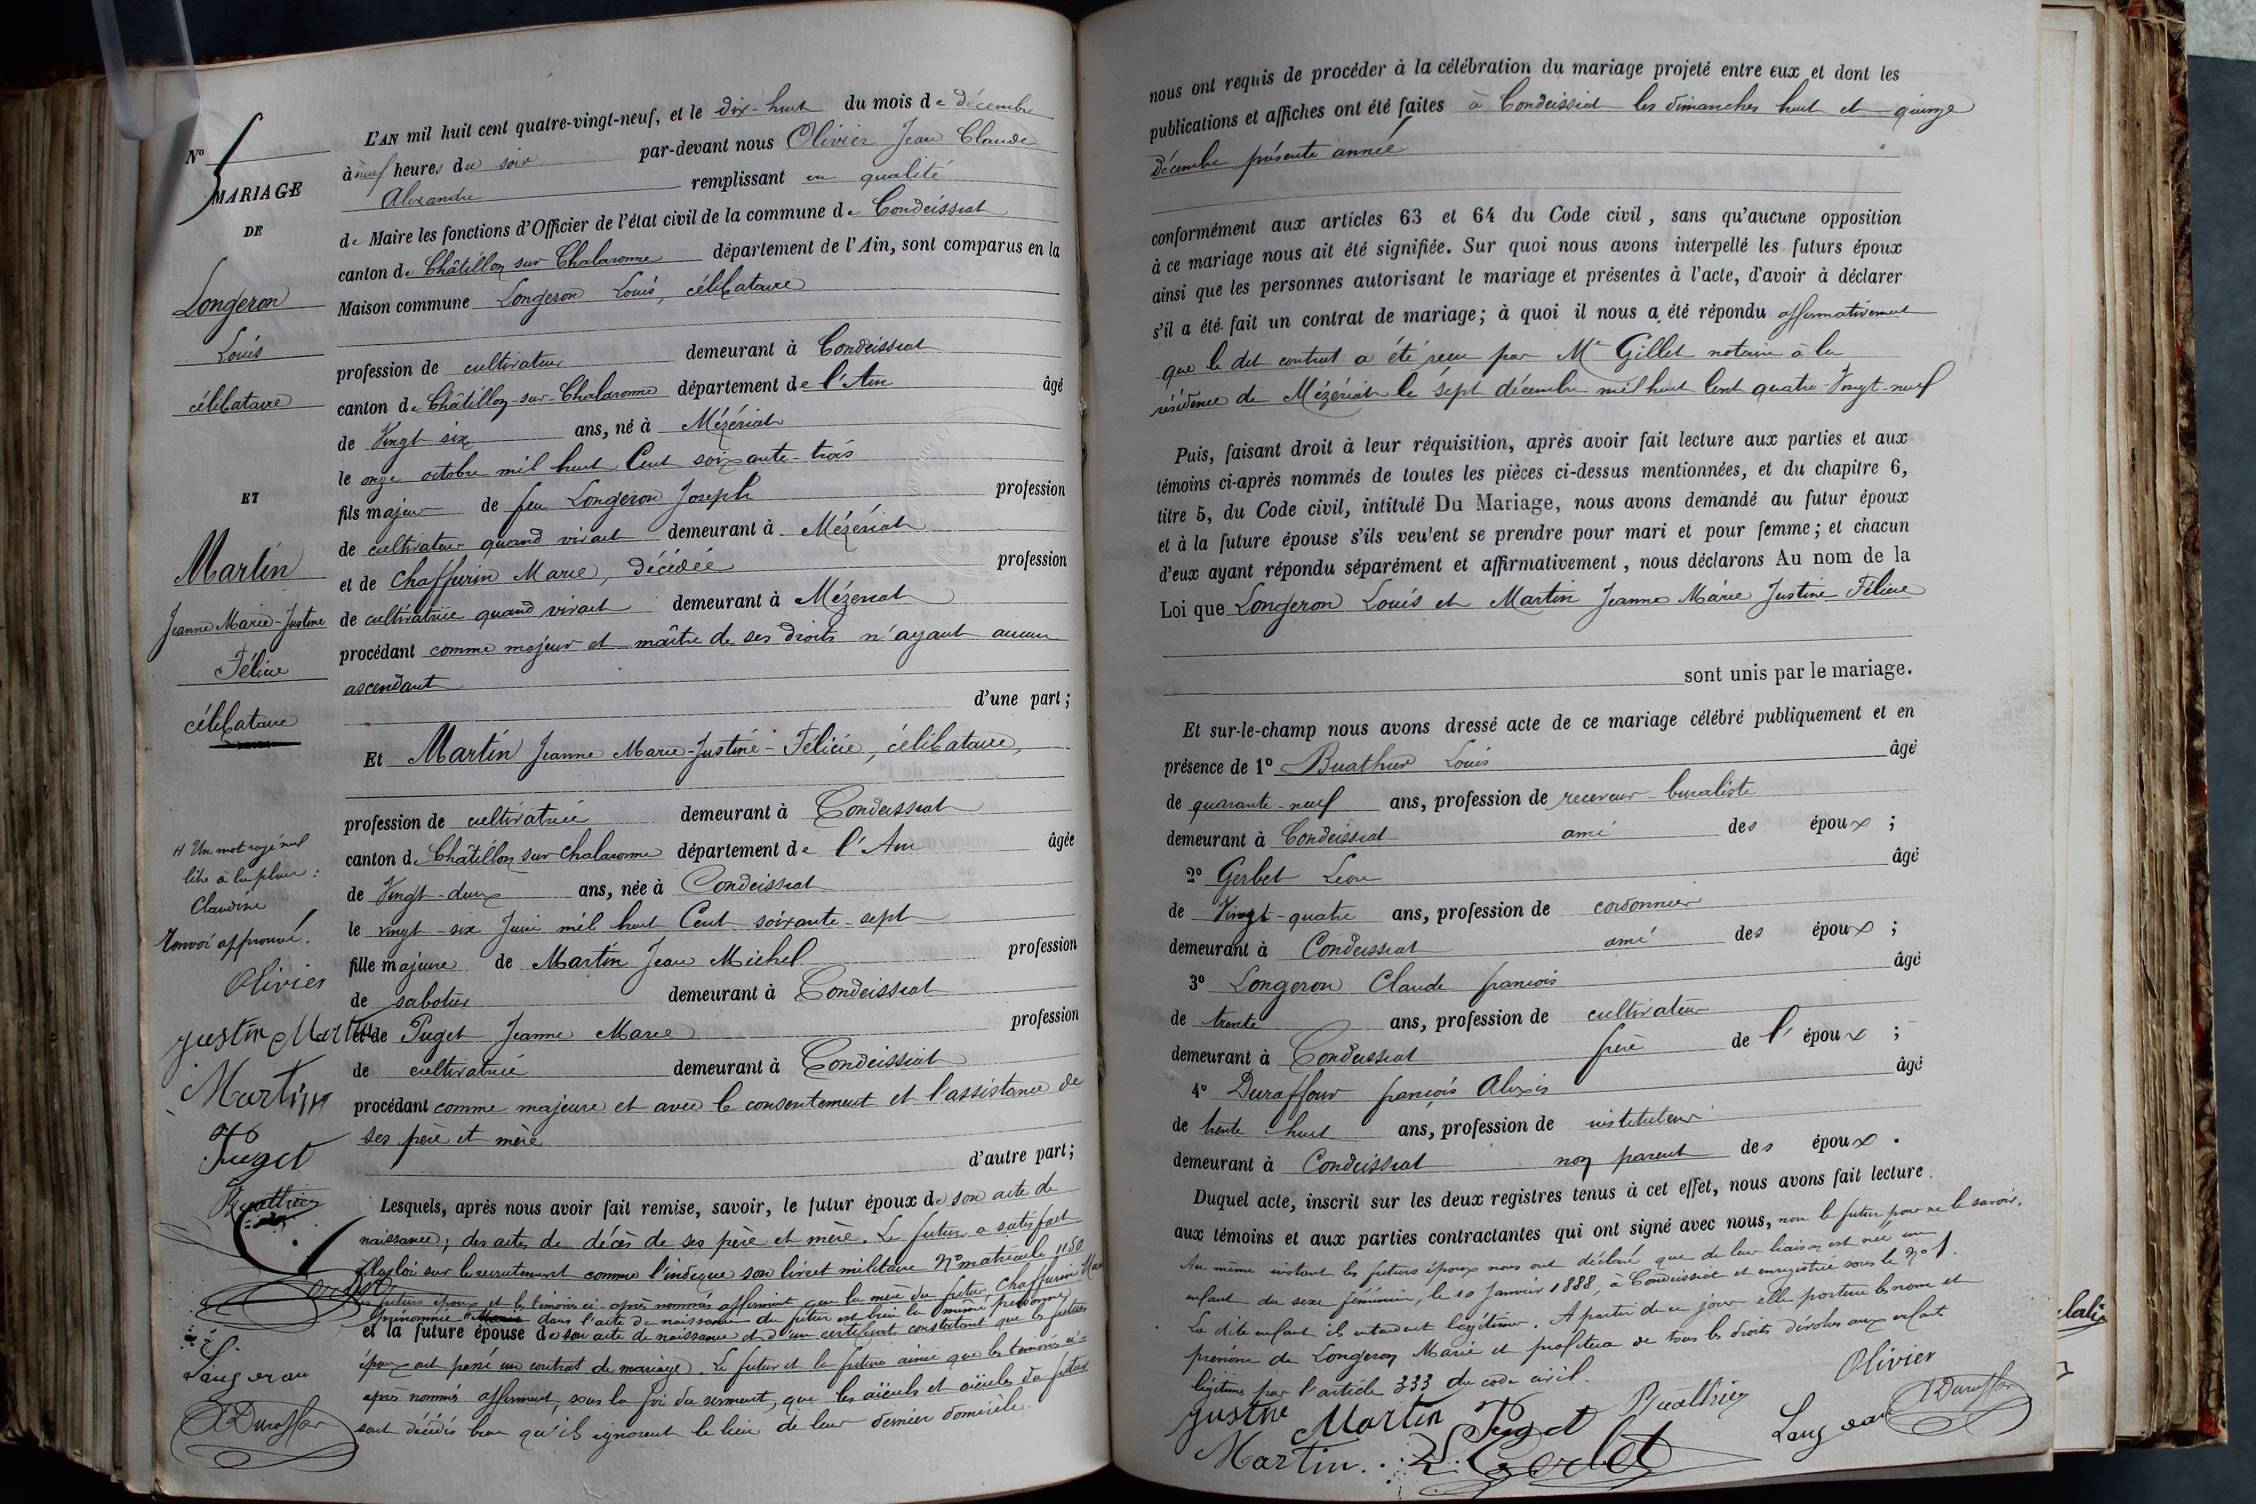 N° 5
MARIAGE
DE
Longeron
Louis
célibataire
ET
Martin
Jeanne Marie-Justine
Félicie
célibataire
Un mot rayé nul
lire à la place :
Claudine
Renvoi approuvé.
Olivier
Justine Martin
Martin
Puget
Buathier
Gerbet
Longeron
Duraffour
L'AN mil huit cent quatre-vingt-neuf, et le dix-huit du mois de décembre
à neuf heures du soir par-devant nous Olivier Jean Claude
Alexandre remplissant en qualité
de Maire les fonctions d'Officier de l'état civil de la commune de Condeissiat
canton de Châtillon sur Chalaronne département de l'Ain, sont comparus en la
Maison commune Longeron Louis, célibataire
profession de cultivateur demeurant à Condeissiat
canton de Châtillon-sur-Chalaronne département de l'Ain âgé
de Vingt six ans, né à Mézériat
le onze octobre mil huit Cent soixante-trois
fils majeur de feu Longeron Joseph profession
de cultivateur quand vivait demeurant à Mézériat
et de Chaffurin Marie, décédée profession
de cultivatrice quand vivait demeurant à Mézériat
procédant comme majeur et maître de ses droits n'ayant aucun
ascendant
d'une part ;
Et Martin Jeanne Marie-Justine-Félicie, célibataire,
profession de cultivatrice demeurant à Condeissiat
canton de Châtillon sur Chalaronne département de l'Ain âgée
de Vingt-deux ans, née à Condeissiat
le vingt-six Juin mil huit Cent soixante-sept
fille majeure de Martin Jean Michel profession
de sabotier demeurant à Condeissiat
et de Puget Jeanne Marie profession
de cultivatrice demeurant à Condeissiat
procédant comme majeure et avec le consentement et l'assistance de
ses père et mère
d'autre part ;
Lesquels, après nous avoir fait remise, savoir, le futur époux de son acte de
naissance ; des actes de décès de ses père et mère. Le futur a satisfait
à la loi sur le recrutement comme l'indique son livret militaire N° matricule 1150
Les futurs époux et les témoins ci-après nommés affirment que la mère du futur, Chaffurin Marie
prénommée Marie dans l'acte de naissance du futur est bien la même personne
et la future épouse de son acte de naissance et d'un certificat constatant que les futurs
époux ont passé un contrat de mariage. Le futur et la future ainsi que les témoins ci-
après nommés affirment, sous la foi du serment, que les aïeuls et aïeules du futur
sont décédés bien qu'ils ignorent le lieu de leur dernier domicile.
nous ont requis de procéder à la célébration du mariage projeté entre eux et dont les
publications et affiches ont été faites à Condeissiat les dimanches huit et quinze
décembre présente année
conformément aux articles 63 et 64 du Code civil, sans qu'aucune opposition
à ce mariage nous ait été signifiée. Sur quoi nous avons interpellé les futurs époux
ainsi que les personnes autorisant le mariage et présentes à l'acte, d'avoir à déclarer
s'il a été fait un contrat de mariage ; à quoi il nous a été répondu affirmativement
que le dit contrat a été reçu par Me Gillet notaire à la
résidence de Mézériat le sept décembre mil huit Cent quatre-Vingt-neuf
Puis, faisant droit à leur réquisition, après avoir fait lecture aux parties et aux
témoins ci-après nommés de toutes les pièces ci-dessus mentionnées, et du chapitre 6,
titre 5, du Code civil, intitulé Du Mariage, nous avons demandé au futur époux
et à la future épouse s'ils veulent se prendre pour mari et pour femme ; et chacun
d'eux ayant répondu séparément et affirmativement, nous déclarons Au nom de la
Loi que Longeron Louis et Martin Jeanne Marie Justine Félicie
sont unis par le mariage.
Et sur-le-champ nous avons dressé acte de ce mariage célébré publiquement et en
présence de 1° Buathier Louis âgé
de quarante-neuf ans, profession de receveur-buraliste
demeurant à Condeissiat ami des époux ;
2° Gerbet Léon âgé
de Vingt-quatre ans, profession de cordonnier
demeurant à Condeissiat ami des époux ;
3° Longeron Claude françois âgé
de trente ans, profession de cultivateur
demeurant à Condeissiat frère de l'époux ;
4° Duraffour françois Alexis âgé
de trente huit ans, profession de instituteur
demeurant à Condeissiat non parent des époux.
Duquel acte, inscrit sur les deux registres tenus à cet effet, nous avons fait lecture
aux témoins et aux parties contractantes qui ont signé avec nous, non le futur pour ne le savoir.
Au même instant les futurs époux nous ont déclaré que de leur liaison est née un
enfant du sexe féminin, le 10 Janvier 1888, à Condeissiat et enregistrée sous le N° 1.
La dite enfant ils entendent légitimer. A partir de ce jour elle portera les nom et
prénom de Longeron Marie et profitera de tous les droits dévolus aux enfants
légitimes par l'article 333 du code civil.
Olivier
Justine Martin Puget Buathier
Martin L. Gerbet Longeron Duraffour